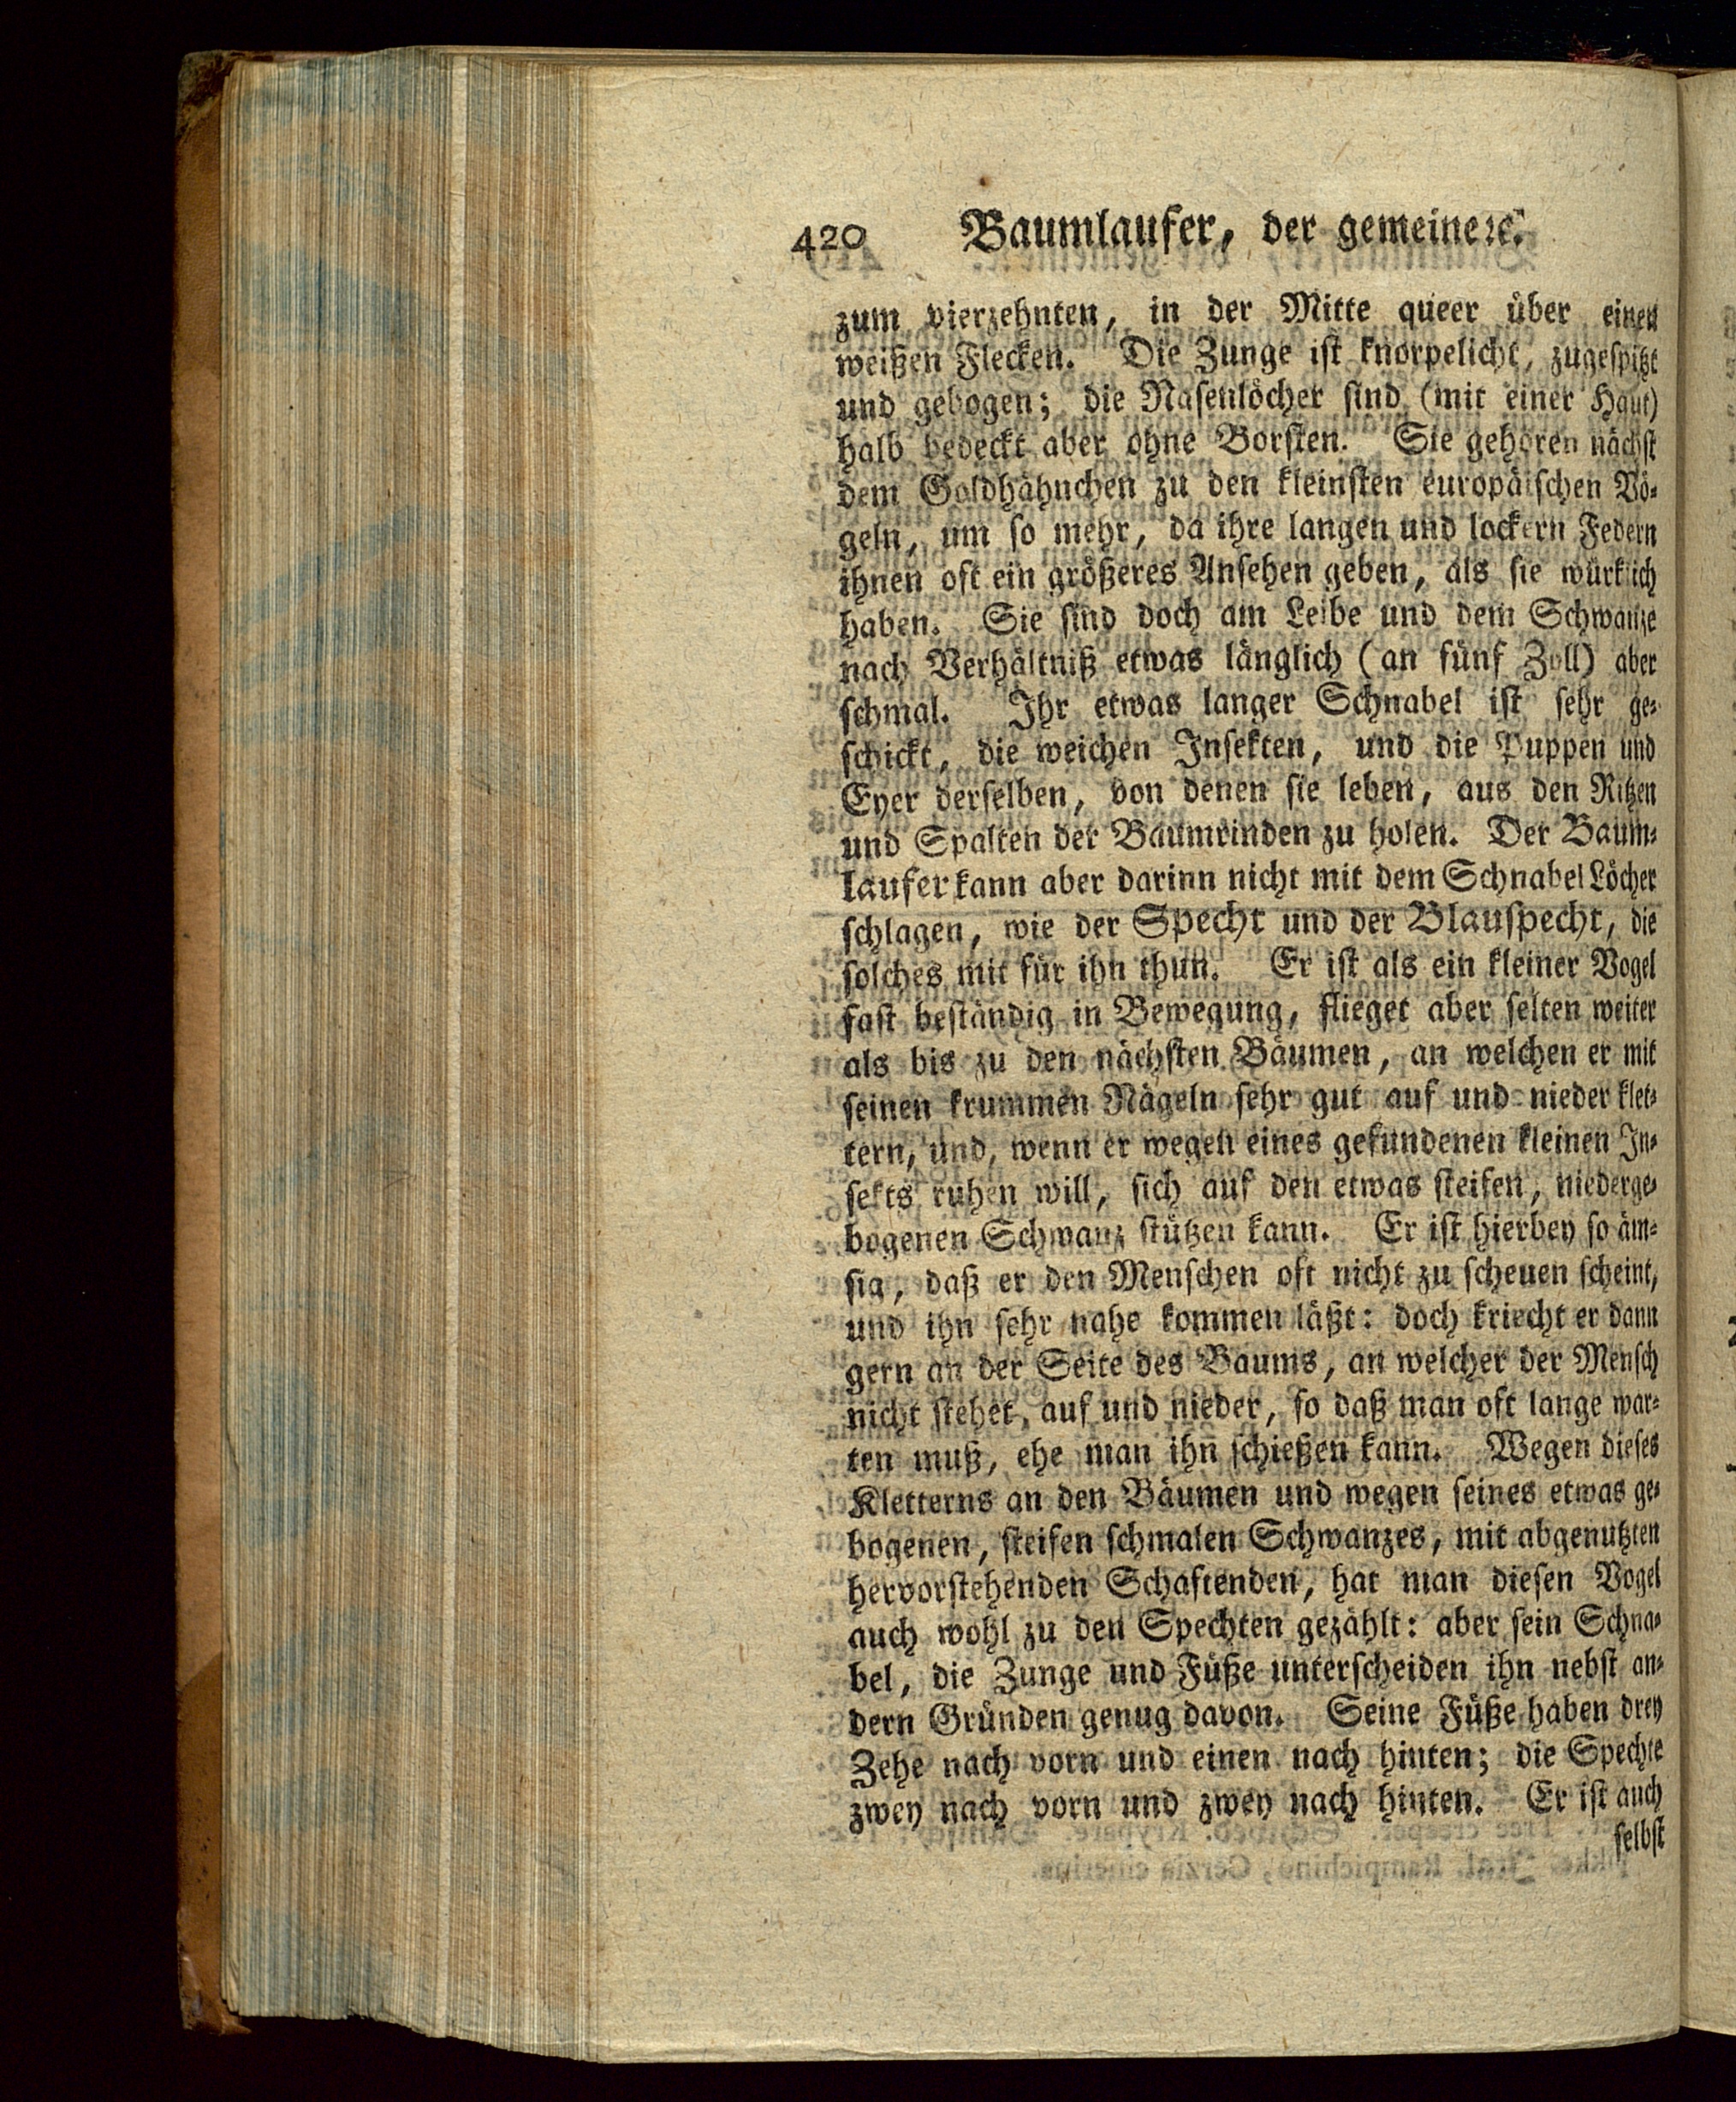 420 Baumlaufer, der gemeinere.
zum vierzehnten, in der Mitte queer über einen
weißen Flecken. Die Zunge ist knorpelicht, zugespitzt
und gebogen; die Nasenlöcher sind (mit einer Haut)
halb bedeckt aber ohne Borsten. Sie gehören nächst
dem Goldhähnchen zu den kleinsten europäischen Vö-
geln, um so mehr, da ihre langen und lockern Federn
ihnen oft ein größeres Ansehen geben, als sie würklich
haben. Sie sind doch am Leibe und dem Schwanze
nach Verhältniß etwas länglich (an fünf Zoll) aber
schmal. Ihr etwas langer Schnabel ist sehr ge-
schickt, die weichen Insekten, und die Puppen und
Eyer derselben, von denen sie leben, aus den Ritzen
und Spalten der Baumrinden zu holen. Der Baum-
laufer kann aber darinn nicht mit dem Schnabel Löcher
schlagen, wie der Specht und der Blauspecht, die
solches mit für ihn thun. Er ist als ein kleiner Vogel
fast beständig in Bewegung, flieget aber selten weiter
als bis zu den nächsten Bäumen, an welchen er mit
seinen krummen Nägeln sehr gut auf und nieder klet-
tern, und, wenn er wegen eines gefundenen kleinen In-
sekts ruhen will, sich auf den etwas steifen, niederge-
bogenen Schwanz stützen kann. Er ist hierbey so äm-
sig, daß er den Menschen oft nicht zu scheuen scheint,
und ihn sehr nahe kommen läßt: doch kriecht er dann
gern an der Seite des Baums, an welcher der Mensch
nicht stehet, auf und nieder, so daß man oft lange war-
ten muß, ehe man ihn schießen kann. Wegen dieses
Kletterns an den Bäumen und wegen seines etwas ge-
bogenen, steifen schmalen Schwanzes, mit abgenutzten
hervorstehenden Schaftenden, hat man diesen Vogel
auch wohl zu den Spechten gezählt: aber sein Schna-
bel, die Zunge und Füße unterscheiden ihn nebst an-
dern Gründen genug davon. Seine Füße haben drey
Zehe nach vorn und einen nach hinten; die Spechte
zwey nach vorn und zwey nach hinten. Er ist auch
selbst